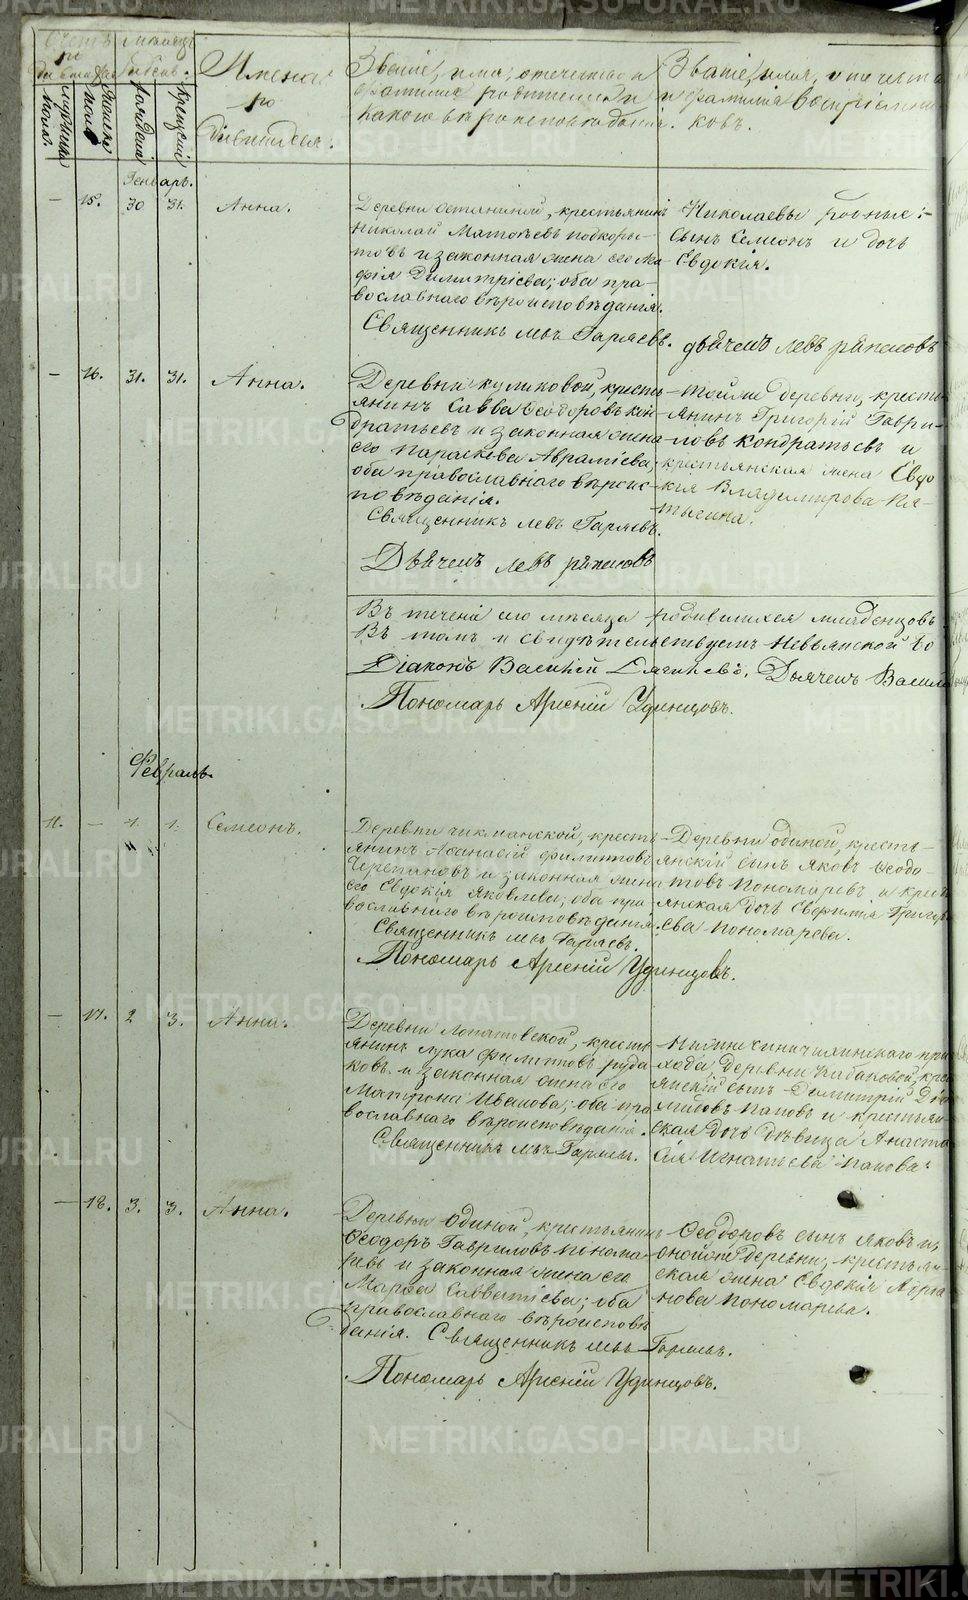 Счетъ родившихся
Мѣсяцъ и день.
мужеска полъ.
женска полъ
рожденія
крещенія
Имена родившихся.
Званіе, имя, отечество и
фамилія родителей и
какого вѣроисповѣданія.
Званіе, имя, отечество
и фамилія воспріемни-
ковъ.
Генварь.
— 15. 30 31. Анна.
Деревни Останиной, крестьянинъ
Николай Матвѣевъ Подкоры-
товъ и законная жена его Ма-
рфія Димитріева; оба пра-
вославнаго вѣроисповѣданія.
Священникъ Левъ Гаряевъ.
Николаевы родные:
сынъ Семеонъ и дочь
Евдокія.
Дьячекъ Левъ
— 16. 31. 31. Анна.
Деревни Куликовой, кресть-
янинъ Савва Ѳеодоровъ Кон-
дратьевъ и законная жена
его Параскева Аврамієва;
оба православнаго вѣроис-
повѣданія.
Священникъ Левъ Гаряевъ.
Дьячекъ Левъ
Той же деревни, кресть-
янинъ Григорій Гаври-
ловъ Кондратьевъ и
крестьянская жена Евдо-
кія Владимірова Пя-
тыгина.
Въ теченіе сего мѣсяца родившихся младенцовъ
Въ томъ и свидѣтельствуемъ Невьянской Бо
Діаконъ Василій Дягилевъ, Дьячекъ
Пономарь Арсеній Удинцовъ.
Февраль.
11. — 1. 1. Семеонъ.
Деревни Чикманской, кресть-
янинъ Аѳанасій Филиповъ
Черепановъ и законная жена
его Евдокія Яковлева; оба пра
вославнаго вѣроисповѣданія.
Священникъ Левъ Гаряевъ.
Пономарь Арсеній Удинцовъ.
Деревни Одиной, кресть-
янскій сынъ Яковъ Ѳеодо-
товъ Пономаревъ и крест
янская дочь Евфимія Григорь
ева Пономарева.
— 17. 2 3. Анна.
Деревни Лопатовской, кресть
янинъ Лука Филиповъ Руда
ковъ и законная жена его
Матрона Иванова; оба пра
вославнаго вѣроисповѣданія.
Священникъ Левъ Гаряевъ.
Нижне Синячихинскаго при
хода, Деревни Кабаковой, крес
янскій сынъ Димитрій
Поповъ и крестьян
ская дочь дѣвица Анаста
сія Игнатіева Попова.
— 18. 3. 3. Анна.
Деревни Одиной, крестьянинъ
Ѳеодоръ Гавриловъ Понома
ревъ и законная жена его
Марѳа Савватіева; оба
православнаго вѣроисповѣ
данія. Священникъ Левъ Гаряевъ.
Пономарь Арсеній Удинцовъ.
Ѳеодоровъ сынъ Яковъ и
оной же деревни, крестьян-
ская жена Евдокія
Пономарева.